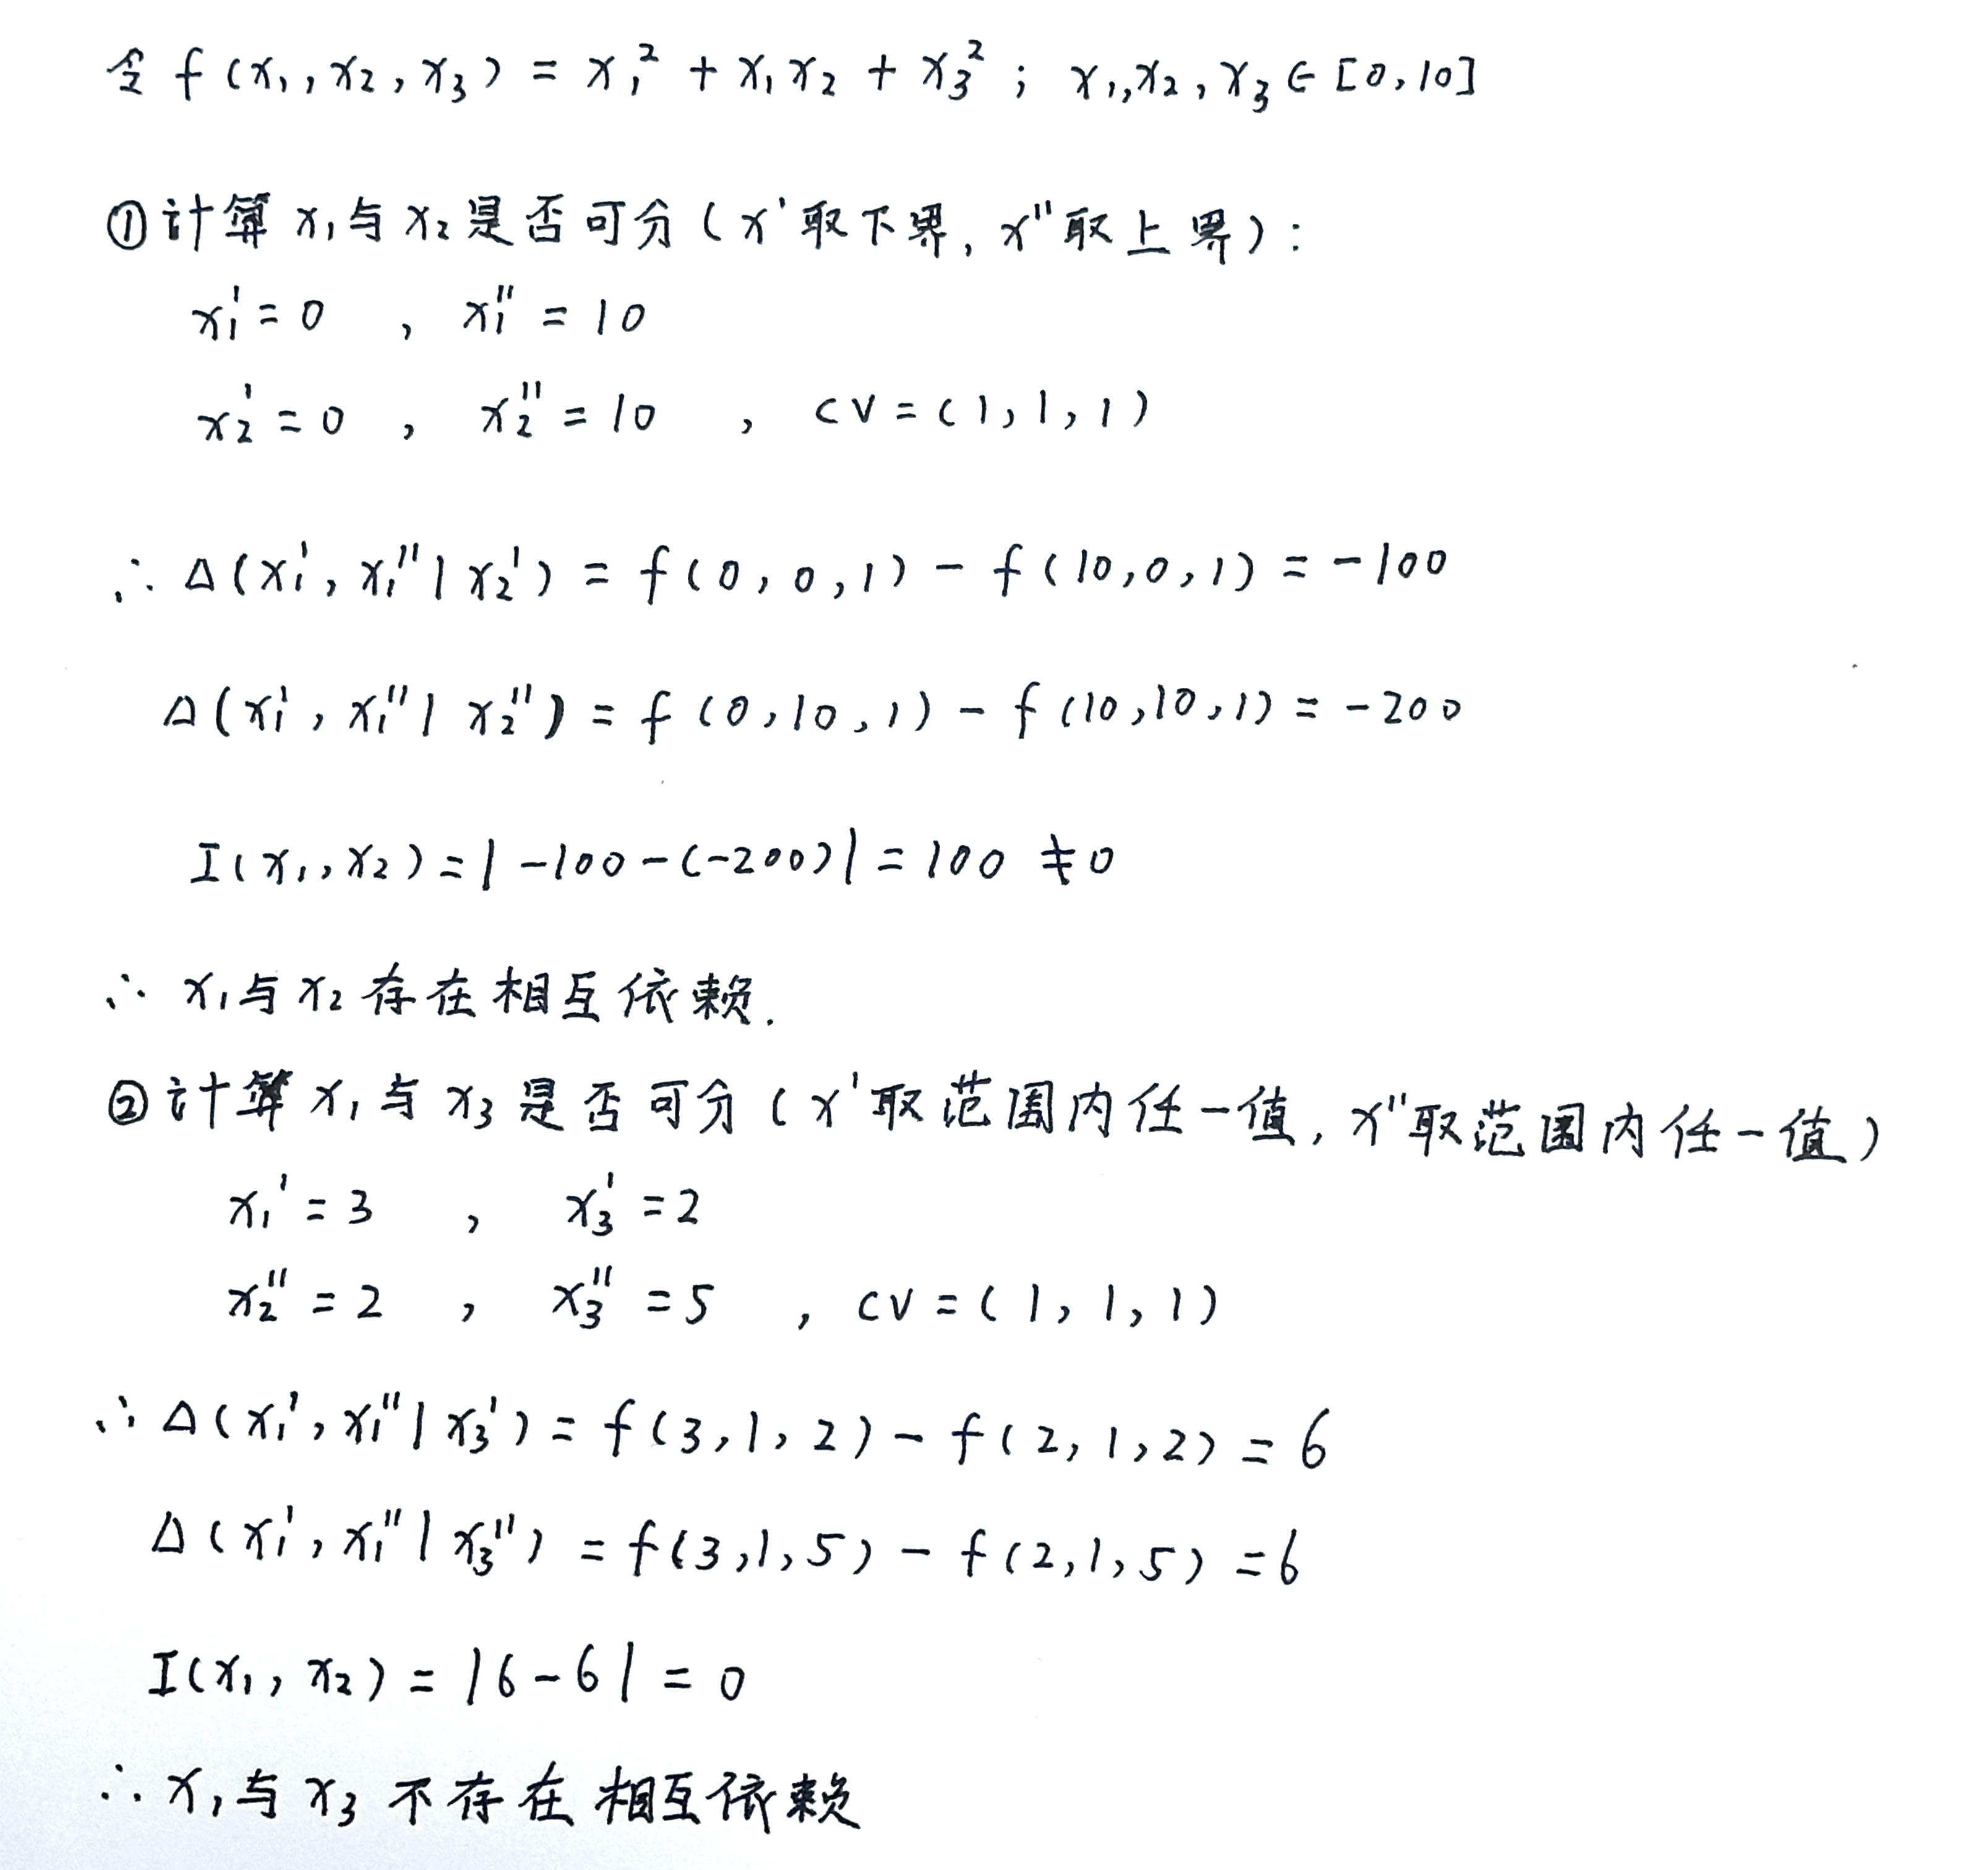 令 f(x₁, x₂, x₃) = x₁² + x₁x₂ + x₃² ; x₁,x₂,x₃ ∈ [0,10]
①计算 x₁与x₂是否可分 (x'取下界, x''取上界) :
x₁' = 0 , x₁'' = 10
x₂' = 0 , x₂'' = 10 , cv = (1,1,1)
∴ Δ(x₁', x₁'' | x₂') = f(0,0,1) - f(10,0,1) = -100
Δ(x₁', x₁'' | x₂'') = f(0,10,1) - f(10,10,1) = -200
I(x₁, x₂) = |-100-(-200)| = 100 ≠ 0
∴ x₁与x₂存在相互依赖.
②计算 x₁与x₃是否可分 (x'取范围内任一值, x''取范围内任一值)
x₁' = 3 , x₃' = 2
x₂'' = 2 , x₃'' = 5 , cv = (1,1,1)
∴ Δ(x₁', x₁'' | x₃') = f(3,1,2) - f(2,1,2) = 6
Δ(x₁', x₁'' | x₃'') = f(3,1,5) - f(2,1,5) = 6
I(x₁, x₂) = |6-6| = 0
∴ x₁与x₃不存在相互依赖